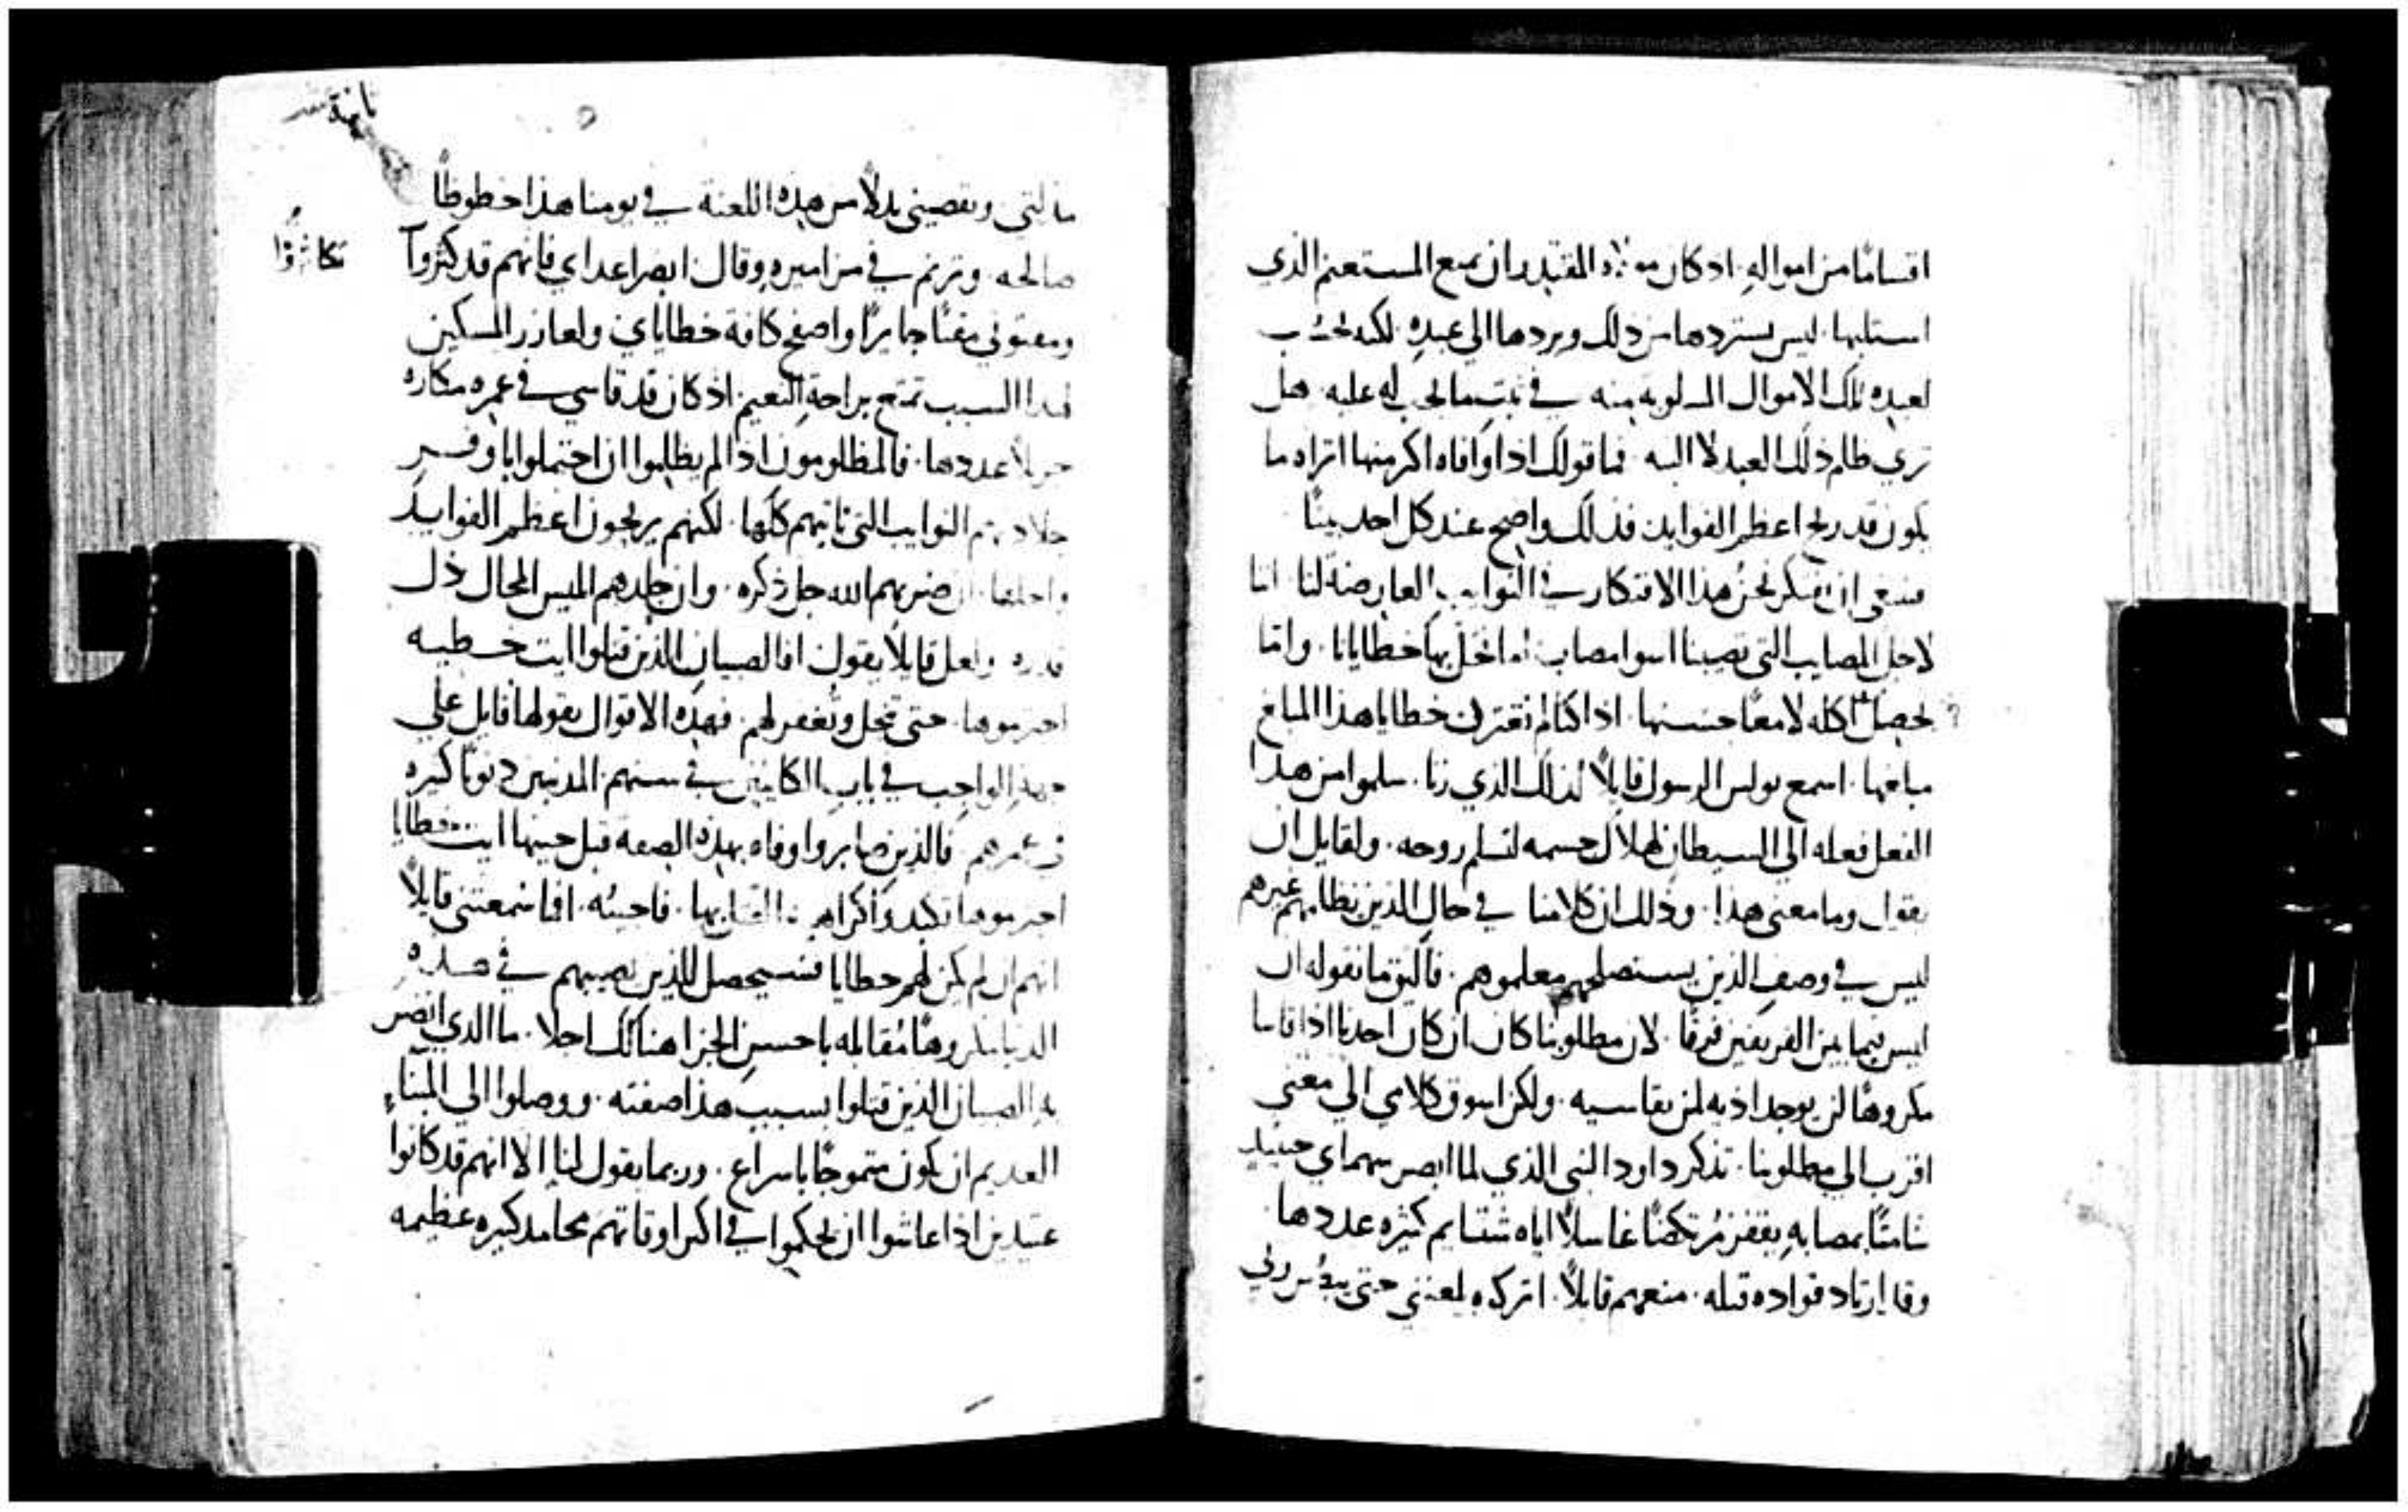 اقسامًا من امواله اذ كان مولاه المقتدر ان يمنع المستغنم الذي
استلبها. ليس يستردها من ذلك ويردها الى عبده. لكنه
لعبده تلك الاموال المسلوبه منه في ثبت ما يجب له عليه. هل
تري ظلم ذلك العبد لا البته. فما قولك اذا اوفاه اكثر منها اتراه ما
يكون قد ربح اعظم الفوايد فذلك واضح عند كل احد بينًا
فينبغي ان نفتكر نحن هذا الافتكار في النوايب العارضة لنا اننا
لاجل المصايب التي تصيبنا اسوا مصاب اما تنحل بها خطايانا. واما
نحصل اكله لامعًا حسنها. اذا كنا لم نقترف خطايا هذا المبلغ
مبلغها. اسمع بولس الرسول قايلاً لذلك الذي زنا. سلموا من هذا
الفعل فعله الى الشيطان لهلاك جسمه لتسلم روحه. ولقايل ان
يقول وما معنى هذا. وذلك ان كلامنا في حال الذين يظلمهم غيرهم
ليس في وصف الذين يستصلحهم معلموهم. فاليق ما نقوله ان
ليس فيما بين الفريقين فرقًا. لان مطلوبنا كان ان كان احدنا اذا قاسا
مكروهًا لن يوجد اذيه لمن يقاسيه. ولكن اسوق كلامي الى معني
اقرب الى مطلوبنا. تذكر داود النبي الذي لما ابصر سمعاي حينيذ
شامتًا بمصابه يقفز مرتكضًا غاسلاً اياه شتايم كثيره عددها.
وقد ارتاد قواده قتله. منعهم قايلاً. اتركوه يلعنني حتى ربي
مذلتي. وتعصيني بدلاً من هذه اللعنة في يومنا هذا حظوظًا
صالحه. وترنم في مزاميره وقال. ابصر اعداي فانهم قد كثروا
تكاثروا
ومقتوني مقتًا جايرًا واصفح كافة خطاياي. ولعازر المسكين
لهذا السبب تمتع براحة النعيم. اذ كان قد قاسي في عمره مكاره
جزيلاً عددها. فالمظلومون اذا لم يظلموا ان احتملوا باوفر
جلادتهم النوايب التي تاتيهم كلها. لكنهم يربحون اعظم الفوايد
واجلها. ان ضربهم الله جل ذكره. وان جلدهم ابليس المحال ذل
قدره. ولعل قايلاً يقول. افالصبيان الذين قتلوا ايت خطيه
اجترموها. حتى تنحل وتغفر لهم. فهذه الاقوال يقولها قايل علي
جهة الواجب في باب الكاينين في سنهم المذنبين ذنوبًا كثيره
في عمرهم. فالذين صابروا وفاه بهذه الصفة قبل حينها ايت خطايا
اجترموها. فاجيبه. افما سمعتني قايلاً
انهم ان لم يكن لهم خطايا فسيحصل للذين يصيبهم في هذه
الدنيا مكروهًا مقابله باحسن الجزا هنالك اجلا. ما الذي انضر
به الصبيان الذين قتلوا بسبب هذا صفته. ووصلوا الى المينآء
العديم ان يكون متموجًا باسراع. وربما يقول لنا الا انهم قد كانوا
عتيدين اذا عاشوا ان يحكموا في اكثر اوقاتهم محامد كثيره عظيمه